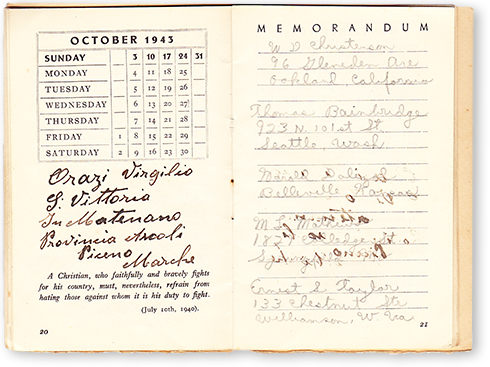 OCTOBER 1943
SUNDAY 3 10 17 24 31
MONDAY 4 11 18 25
TUESDAY 5 12 19 26
WEDNESDAY 6 13 20 27
THURSDAY 7 14 21 28
FRIDAY 1 8 15 22 29
SATURDAY 2 9 16 23 30
Orazi Virgilio
S. Vittoria
In Matenano
Provincia Ascoli
Piceno
Marche
A Christian, who faithfully and bravely fights
for his country, must, nevertheless, refrain from
hating those against whom it is his duty to fight.
(July 10th, 1940).
20
MEMORANDUM
W D Christenson
96 Gleneden Ave
Oakland, California
Thomas Bainbridge
923 N. 101st St.
Seattle, Wash
Belleville Kansas
M L
Ernest S Taylor
133 Chestnut Ste
Williamson, W Va
21